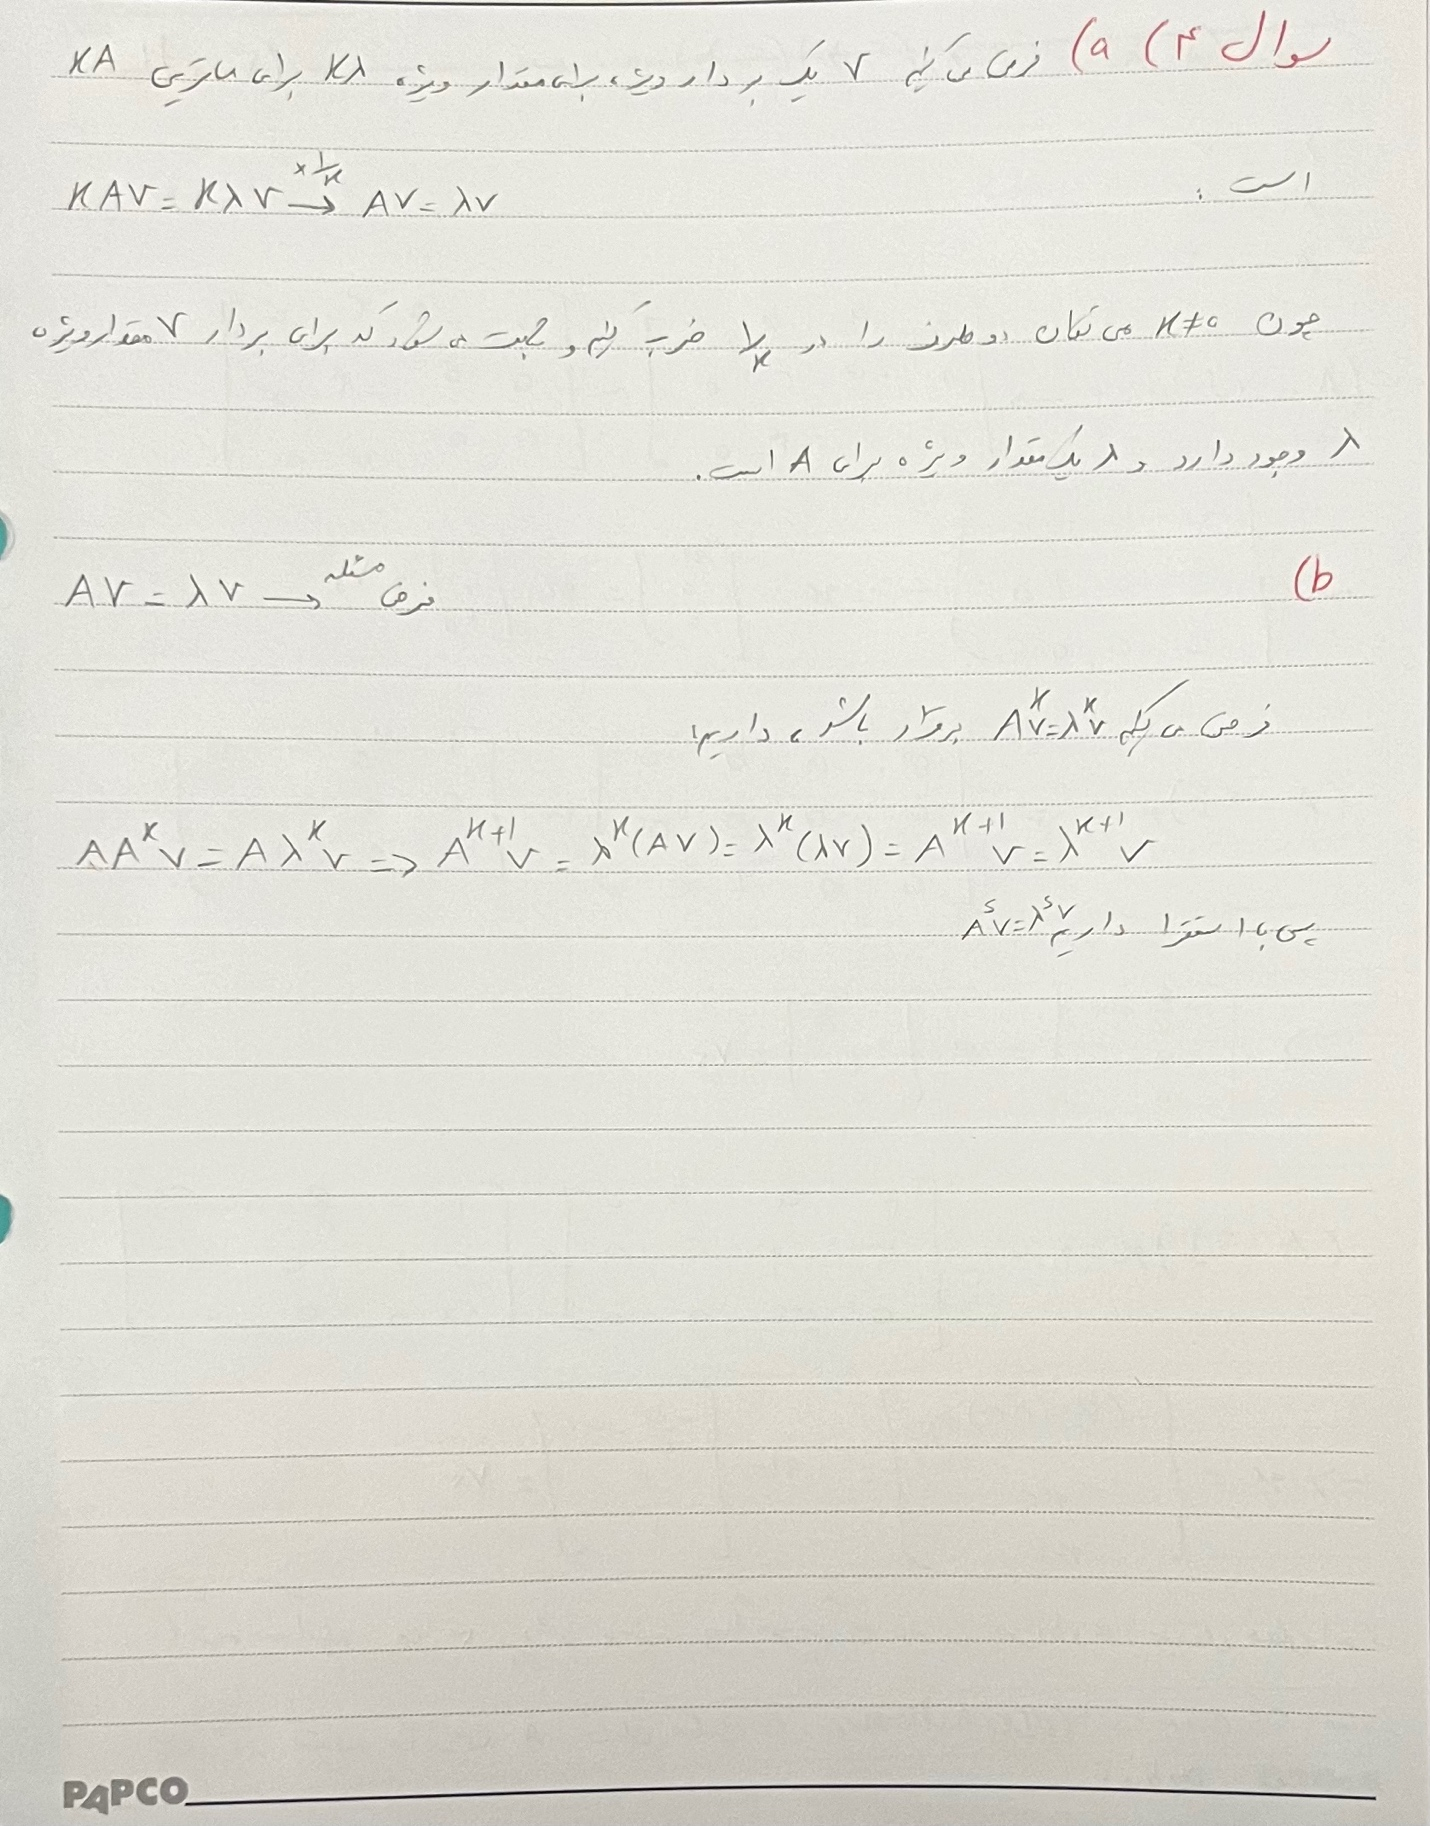 سوال ۴) a) فرض می کنیم v یک بردار ویژه برای مقدار ویژه Kλ برای ماتریس KA
است:
KAv = Kλv →^{×1/K} Av = λv
چون K≠0 می توان دو طرف را در 1/K ضرب کنیم و ثابت می شود که برای بردار v مقدار ویژه
λ وجود دارد و λ یک مقدار ویژه برای A است.
b) Av = λv → فرض مسئله
فرض می کنیم A^K v = λ^K v برقرار باشد، داریم:
AA^K v = Aλ^K v => A^{K+1} v = λ^K(Av) = λ^K(λv) = A^{K+1} v = λ^{K+1} v
پس با استقرا داریم A^s v = λ^s v
PAPCO